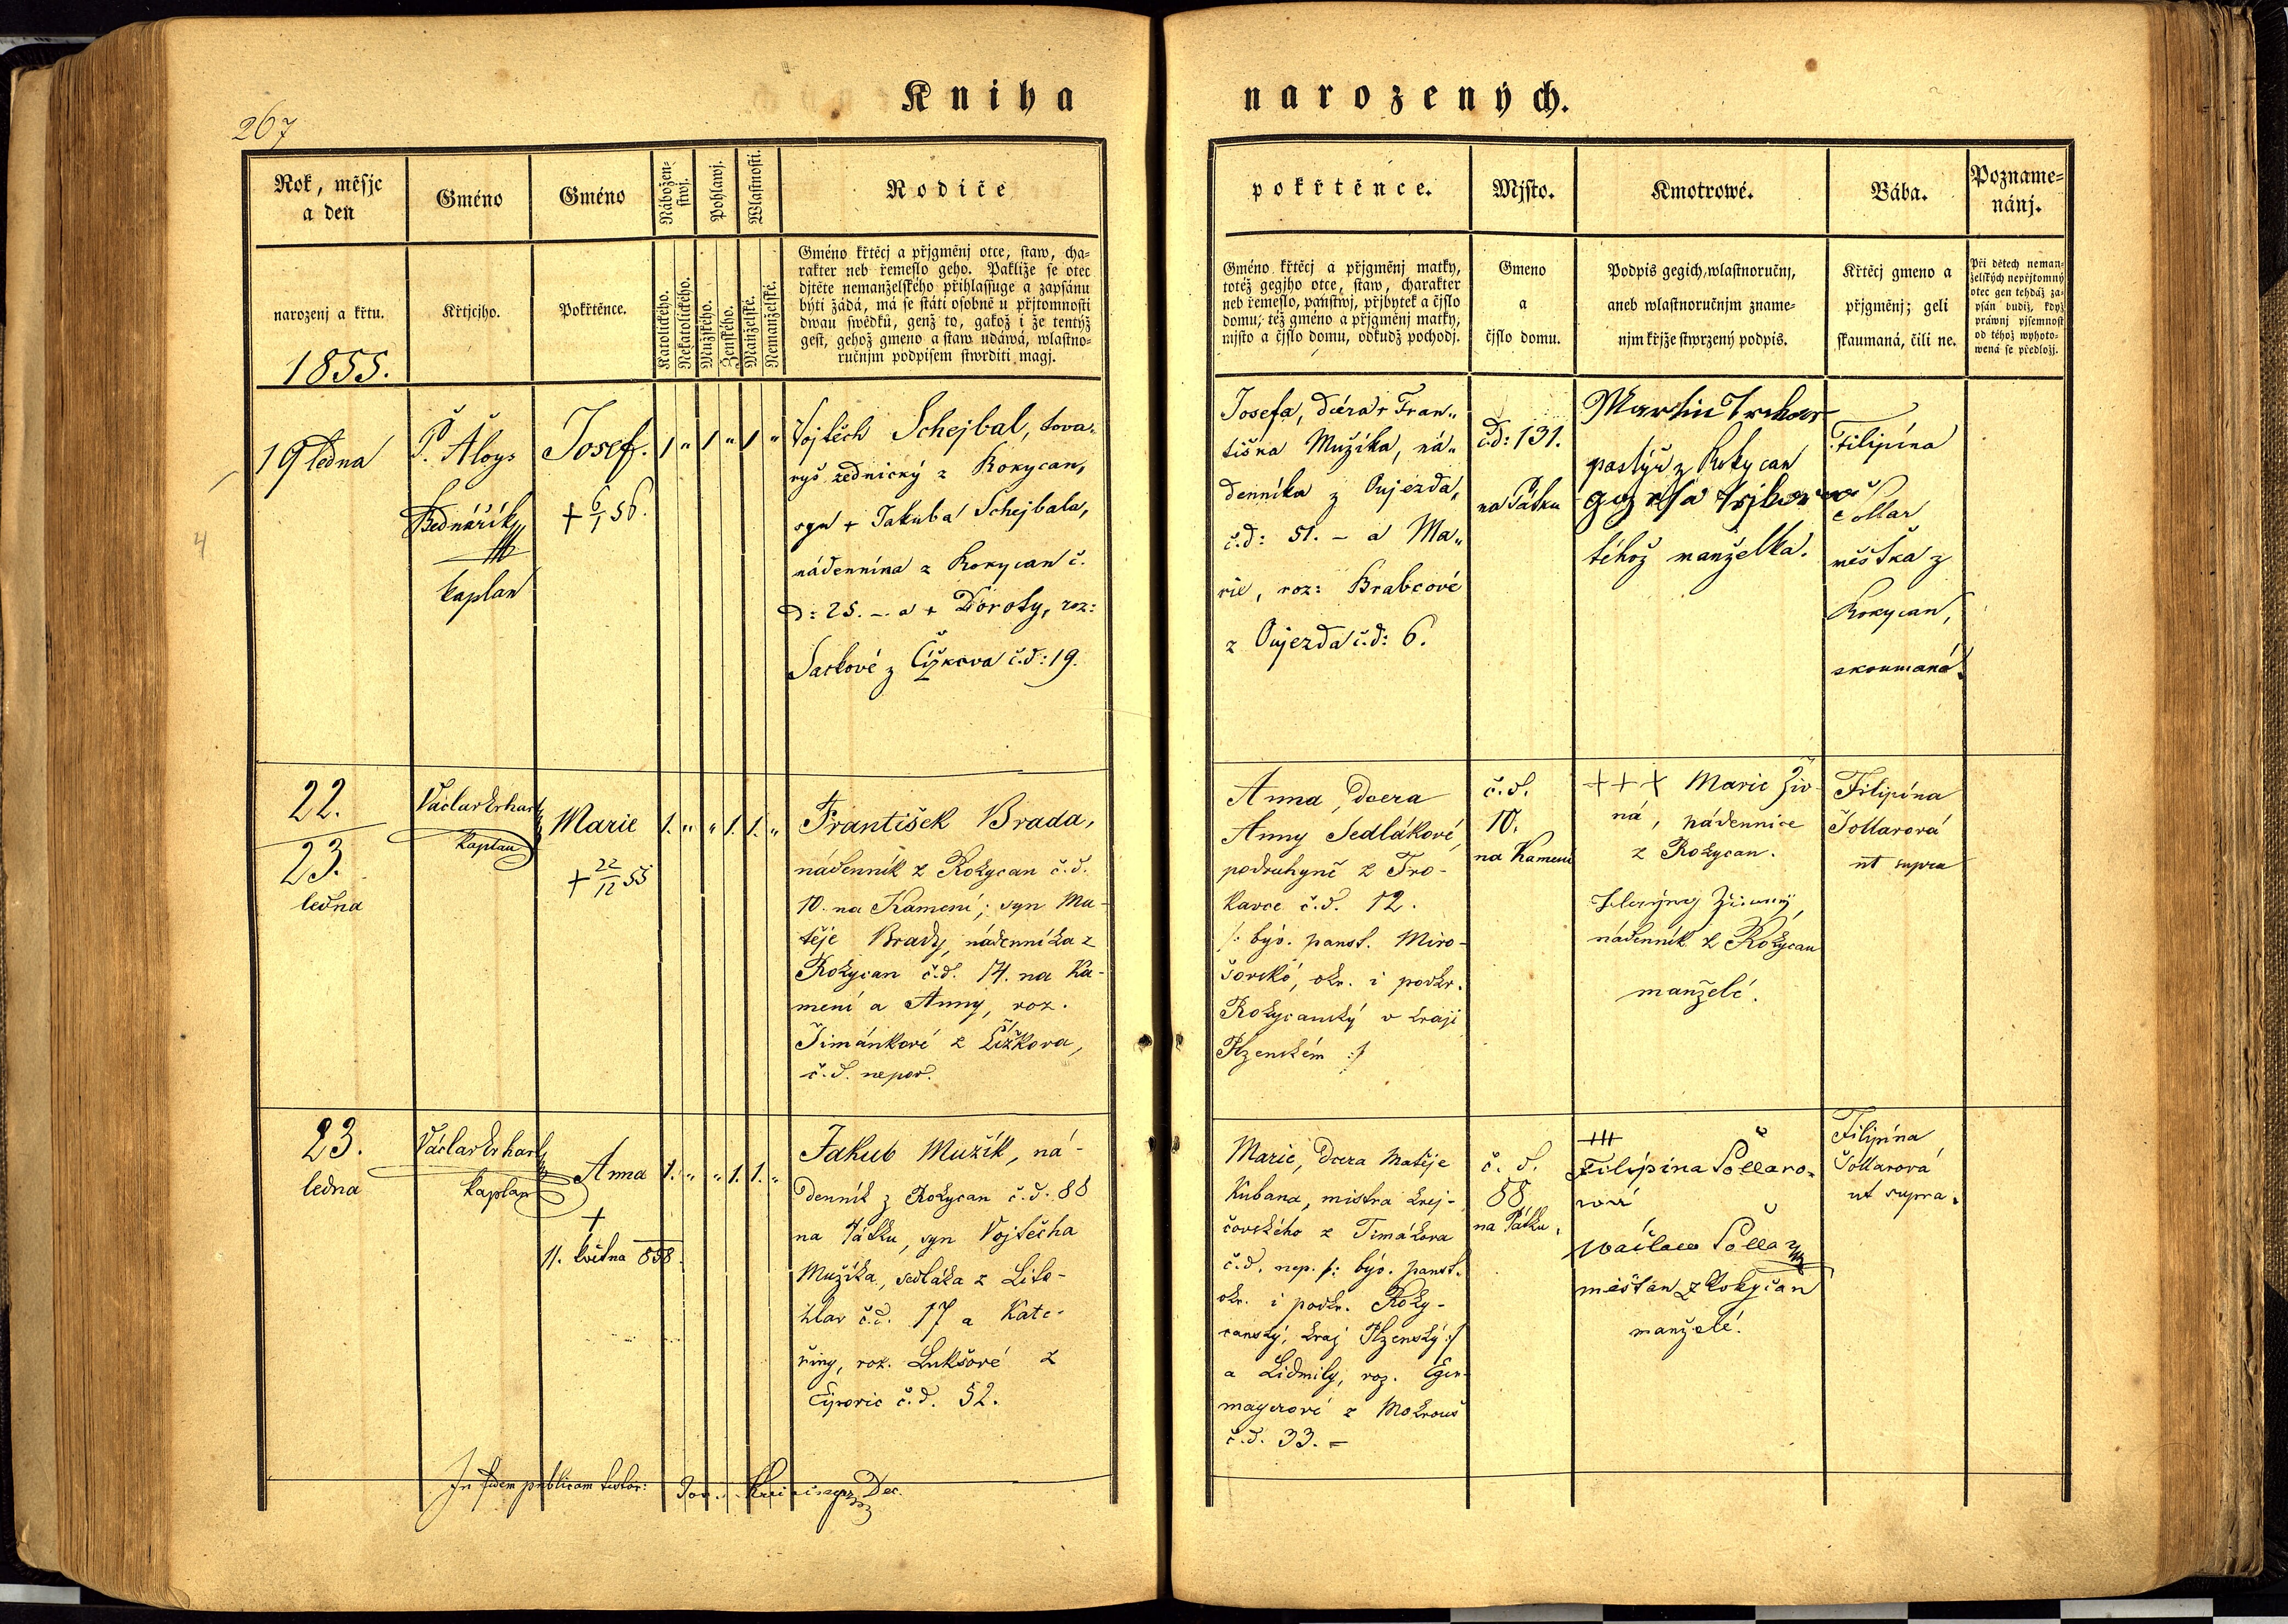 Kniha
narozených.
267
Rok, měsje
a den
narozenj a křtu.
1855.
Gméno
Křtjcjho.
Gméno
Pokřtěnce.
Nábožen-
stwj.
Katolického.
Nekatolického.
Pohlawj.
Mužského.
Ženského.
Wlastnosti.
Manželské.
Nemanželské.
Rodiče
Gméno křtěcj a přjgměnj otce, staw, cha-
rakter neb řemeslo geho. Pakliže se otec
djtěte nemanželského přihlassuge a zapsánu
býti žádá, má se státi osobně u přjtomnosti
dwau swědků, genž to, gakož i že tentýž
gest, gehož gmeno a staw udáwá, wlastno-
ručnjm podpisem stwrditi magj.
pokřtěnce.
Gméno křtěcj a přjgměnj matky,
totéž gegjho otce, staw, charakter
neb řemeslo, panstwj, přjbytek a čjslo
domu; též gméno a přjgměnj matky,
mjsto a čjslo domu, odkudž pochodj.
Mjsto.
Gmeno
a
čjslo domu.
Kmotrowé.
Podpis gegich, wlastnoručnj,
aneb wlastnoručnjm zname-
njm křjže stwrzený podpis.
Bába.
Křtěcj gmeno a
přjgměnj; geli
skaumaná, čili ne.
Pozname-
nánj.
Při dětech neman-
želských nepřjtomný
otec gen tehdáž za-
psán budiž, když
práwnj pjsemnost
od téhož wyhoto-
wená se předložj.
19 ledna
4
P. Áloys
Bednářík
kaplan
Josef.
+ 6/1 56.
1 " 1 " 1 "
Vojtěch Schejbal, tova-
ryš zednický z Rokycan,
syn + Jakuba Schejbala,
nádenníka z Rokycan č.
d: 25. – a + Doroty, roz:
z Čížkova č.d: 19.
Josefa, dcera + Fran-
tiška Mužíka, ná-
denníka z Oujezda,
č.d: 51. – a Ma-
rie, roz: Brabcové
z Oujezda č.d: 6.
č.d: 131.
na Pátku
Martin
pastýř z Rokycan
téhož manželka.
Filipína
Šollar
měštka z
Rokycan,
skoumaná.
22.
23.
ledna
Václav Erhart
kaplan
Marie
+ 22/12 55
1. " " 1. 1. "
František Brada,
nádenník z Rokycan č.d.
10. na Kamení; syn Ma-
těje Brady, nádenníka z
Rokycan č.d. 14. na Ka-
mení a Anny, roz.
Šimánkové z Čížkova,
č.d. nepov.
Anna, dcera
Anny Sedlákové,
podruhyně z Tro-
kavce č.d. 12.
/: býv. panst. Miro-
šovské, okr. i podkr.
Rokycanský v kraji
Plzenském :/
č.d.
10.
na Kamení
+++ Marie Živ-
ná, nádennice
z Rokycan.
nádenník z Rokycan
manželé.
Filipína
Šollarová
ut supra
23.
ledna
Václav Erhart
kaplan
Anna
+
11. května 858.
1. " " 1. 1. "
Jakub Mužík, ná-
denník z Rokycan č.d. 88
na Pátku, syn Vojtěcha
Mužíka, sedláka z Lito-
hlav č.d. 17 a Kate-
řiny, roz. Lukšové z
č.d. 52.
Marie, dcera Matěje
Kubana, mistra krej-
čovského z Timákova
č.d. nep. /: býv. panst.
okr. i podkr. Roky-
canský, kraj Plzenský :/
a Lidmily, roz. Eger-
mayerové z Mokrouš
č.d. 33. –
č. d.
88
na Pátku.
+++
Filipina Šollaro-
wá
waclaw Šollar
měšťan z Rokycan
manželé.
Filipína
Šollarová
ut supra.
In fidem publicam testor: Dec.